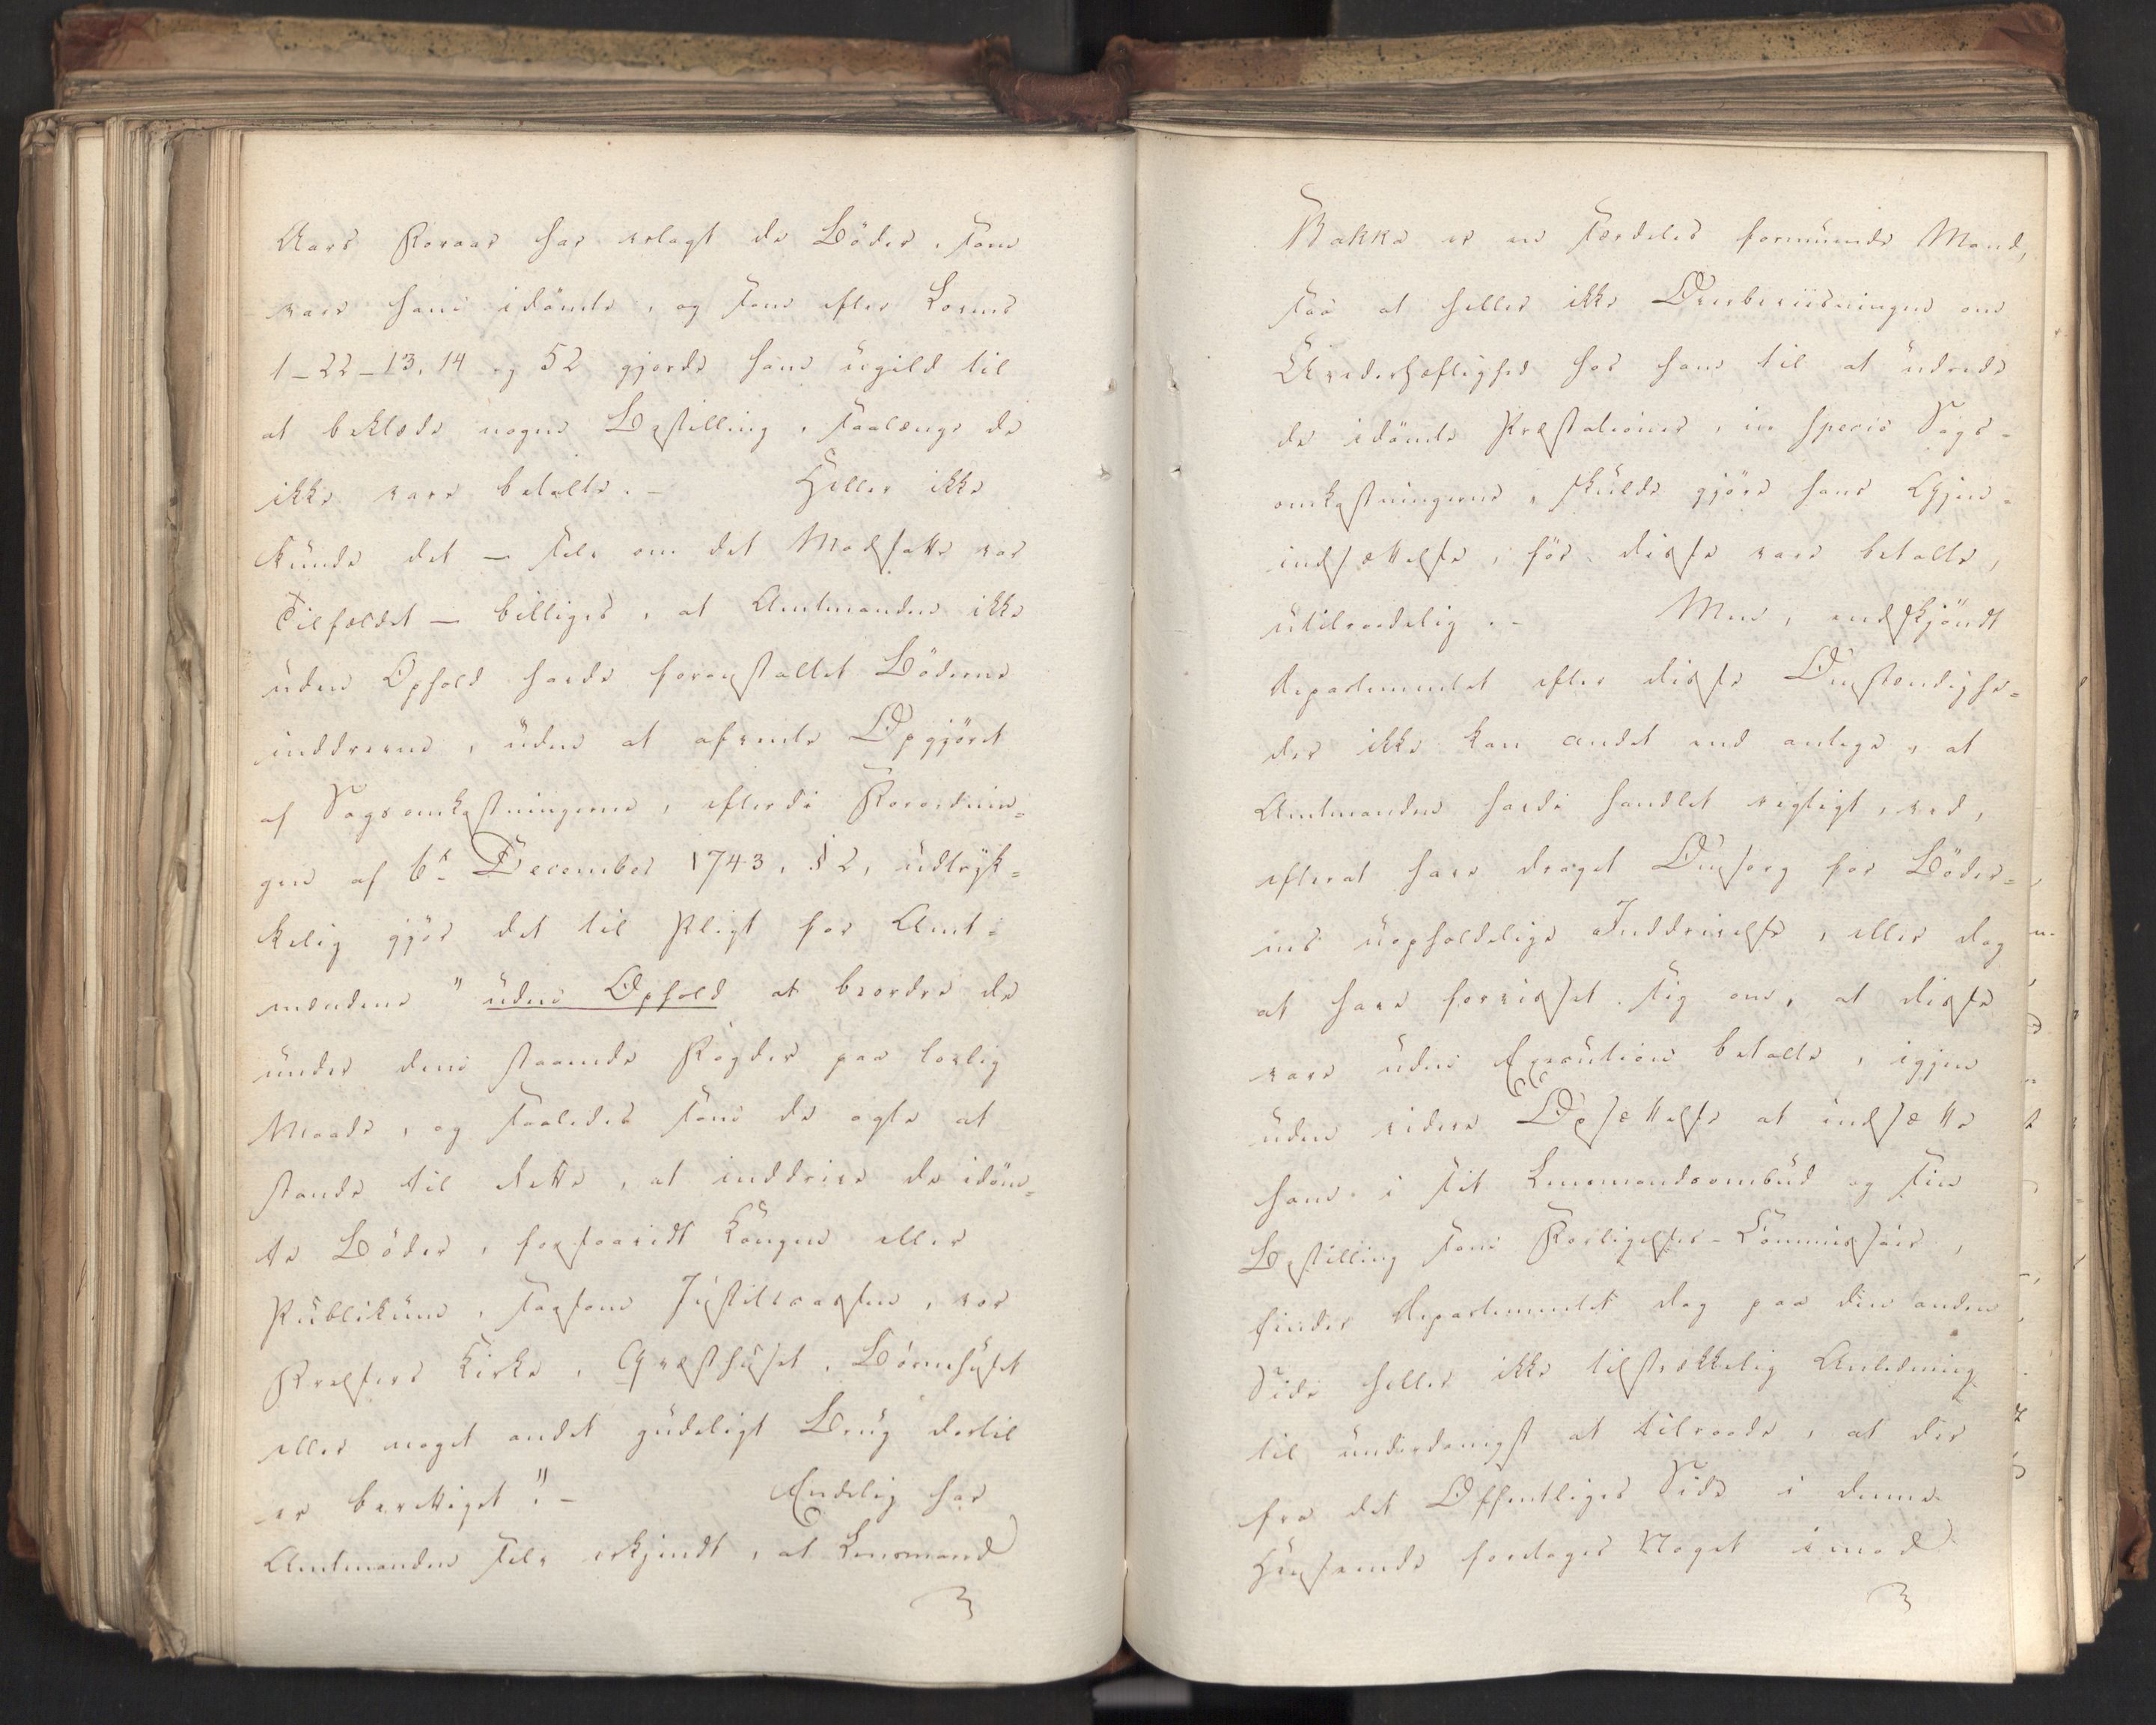 Aars Foraar har erlagt de Böder, som
vare ham idömte, og som efter Lovens
1-22-13, 14 og 52 gjorde ham ugild til
at beklæde nogen Bestilling, saalænge de
ikke vare betalte. - Heller ikke
kunde det - selv om det Modsatte var
Tilfældet - billiges, at Amtmanden ikke
uden Ophold havde foranstaltet Böderne
inddrevne, uden at afvente Opgjöret
af Sagsomkostningerne, efterdi Forordnin=
gen af 6te December 1743, § 2, udtryk=
kelig gjör det til Pligt for Amt=
mændene "uden Ophold at beordre de
under dem staaende Fogder paa lovlig
Maade, og saaledes som de agte at
stande til Rette, at inddrive de idöm=
te Böder, forsaavidt Kongen eller
Publikum, saasom Justitscassen, vor
Frelsers Kirke, Qvæsthuset, Börnehuset
eller noget andet gudeligt Brug dertil
er berettiget". - Endelig har
Amtmanden selv erkjendt, at Lensmand
Bakke er en særdeles formuende Mand,
saa at heller ikke Overbeviisningen om
Vederhæftighed hos ham til at udrede
de idömte Præstationer, in specie Sags=
omkostningerne, skulde gjöre hans Gjen=
indsættelse, för disse vare betalte,
utilraadelig. - Men, endskjöndt
Departementet efter disse Omstændighe=
der ikke kan andet end antage, at
Amtmanden havde handlet rigtigt, ved,
efterat have draget Omsorg for Böder=
nes uopholdelige Inddrivelse, eller dog
at have forvisset sig om, at disse
vare uden Execution betalte, igjen
uden videre Opsættelse at indsætte
ham i sit Lensmandsombud og sin
Bestilling som Forligelses-Commissair,
finder Departementet dog paa den anden
Side heller ikke tilstrækkelig Anledning
til underdanigst at tilraade, at der
fra det Offentliges Side i denne
Henseende foretages Noget imod